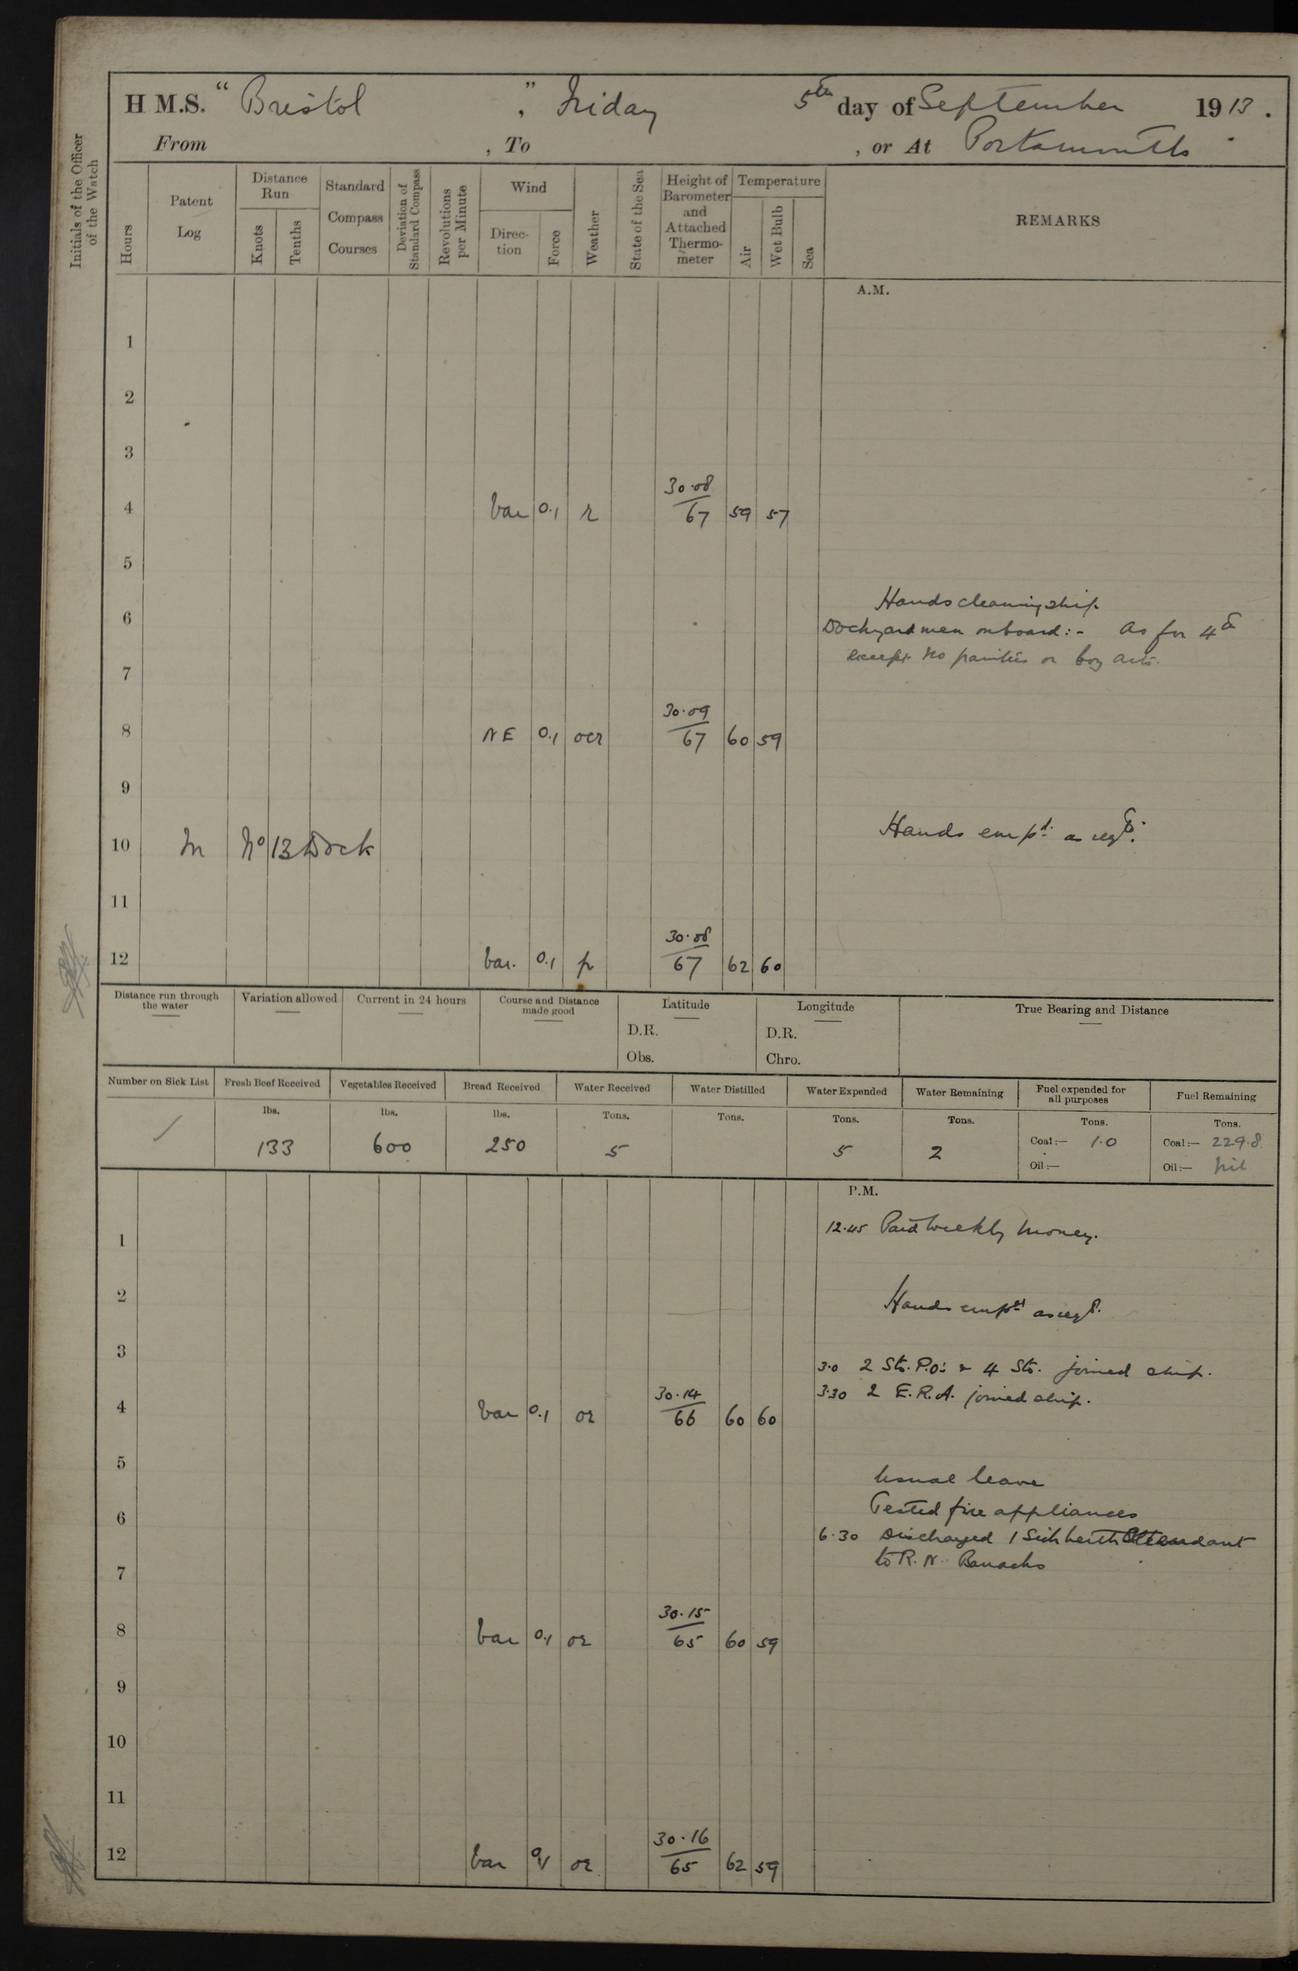 H M.S. "Bristol", Friday 5th day of September 1913.
From , To , or At Portsmouth
Initials of the Officer of the Watch
Hours
Patent Log
Distance Run
Knots
Tenths
Standard Compass Courses
Deviation of Standard Compass
Revolutions per Minute
Wind
Direction
Force
Weather
State of the Sea
Height of Barometer and Attached Thermometer
Temperature
Air
Wet Bulb
Sea
REMARKS
A.M.
1
2
3
4 Var 0.1 r 30.08 67 59 57
5
Hands cleaning ship
6 Dockyard men onboard:- As for 4th
except no painters or boy arts.
7
8 NE 0.1 ocr 30.09 67 60 59
9
10 In No 13 Dock Hands empd. as reqd.
11
12 Var. 0.1 p 30.08 67 62 60
Distance run through the water
Variation allowed
Current in 24 hours
Course and Distance made good
Latitude
D.R.
Obs.
Longitude
D.R.
Chro.
True Bearing and Distance
Number on Sick List
Fresh Beef Received
Vegetables Received
Bread Received
Water Received
Water Distilled
Water Expended
Water Remaining
Fuel expended for all purposes
Fuel Remaining
lbs. lbs. lbs. Tons. Tons. Tons. Tons. Tons. Tons.
133 600 250 5 5 2 Coal:— 1.0 Coal:— 229.8
Oil:— Oil:— Nil
P.M.
1 12.45 Paid weekly money.
2 Hands empd as reqd.
3 3.0 2 Sto. P.O's & 4 Sto. joined ship.
3.30 2 E.R.A. joined ship.
4 Var 0.1 or 30.14 66 60 60
5
Usual leave
6 Tested fire appliances
6.30 Discharged 1 Sick berth Attendant
7 to R.N. Barracks
8 Var 0.1 or 30.15 65 60 59
9
10
11
12 Var 0.1 or 30.16 65 62 59